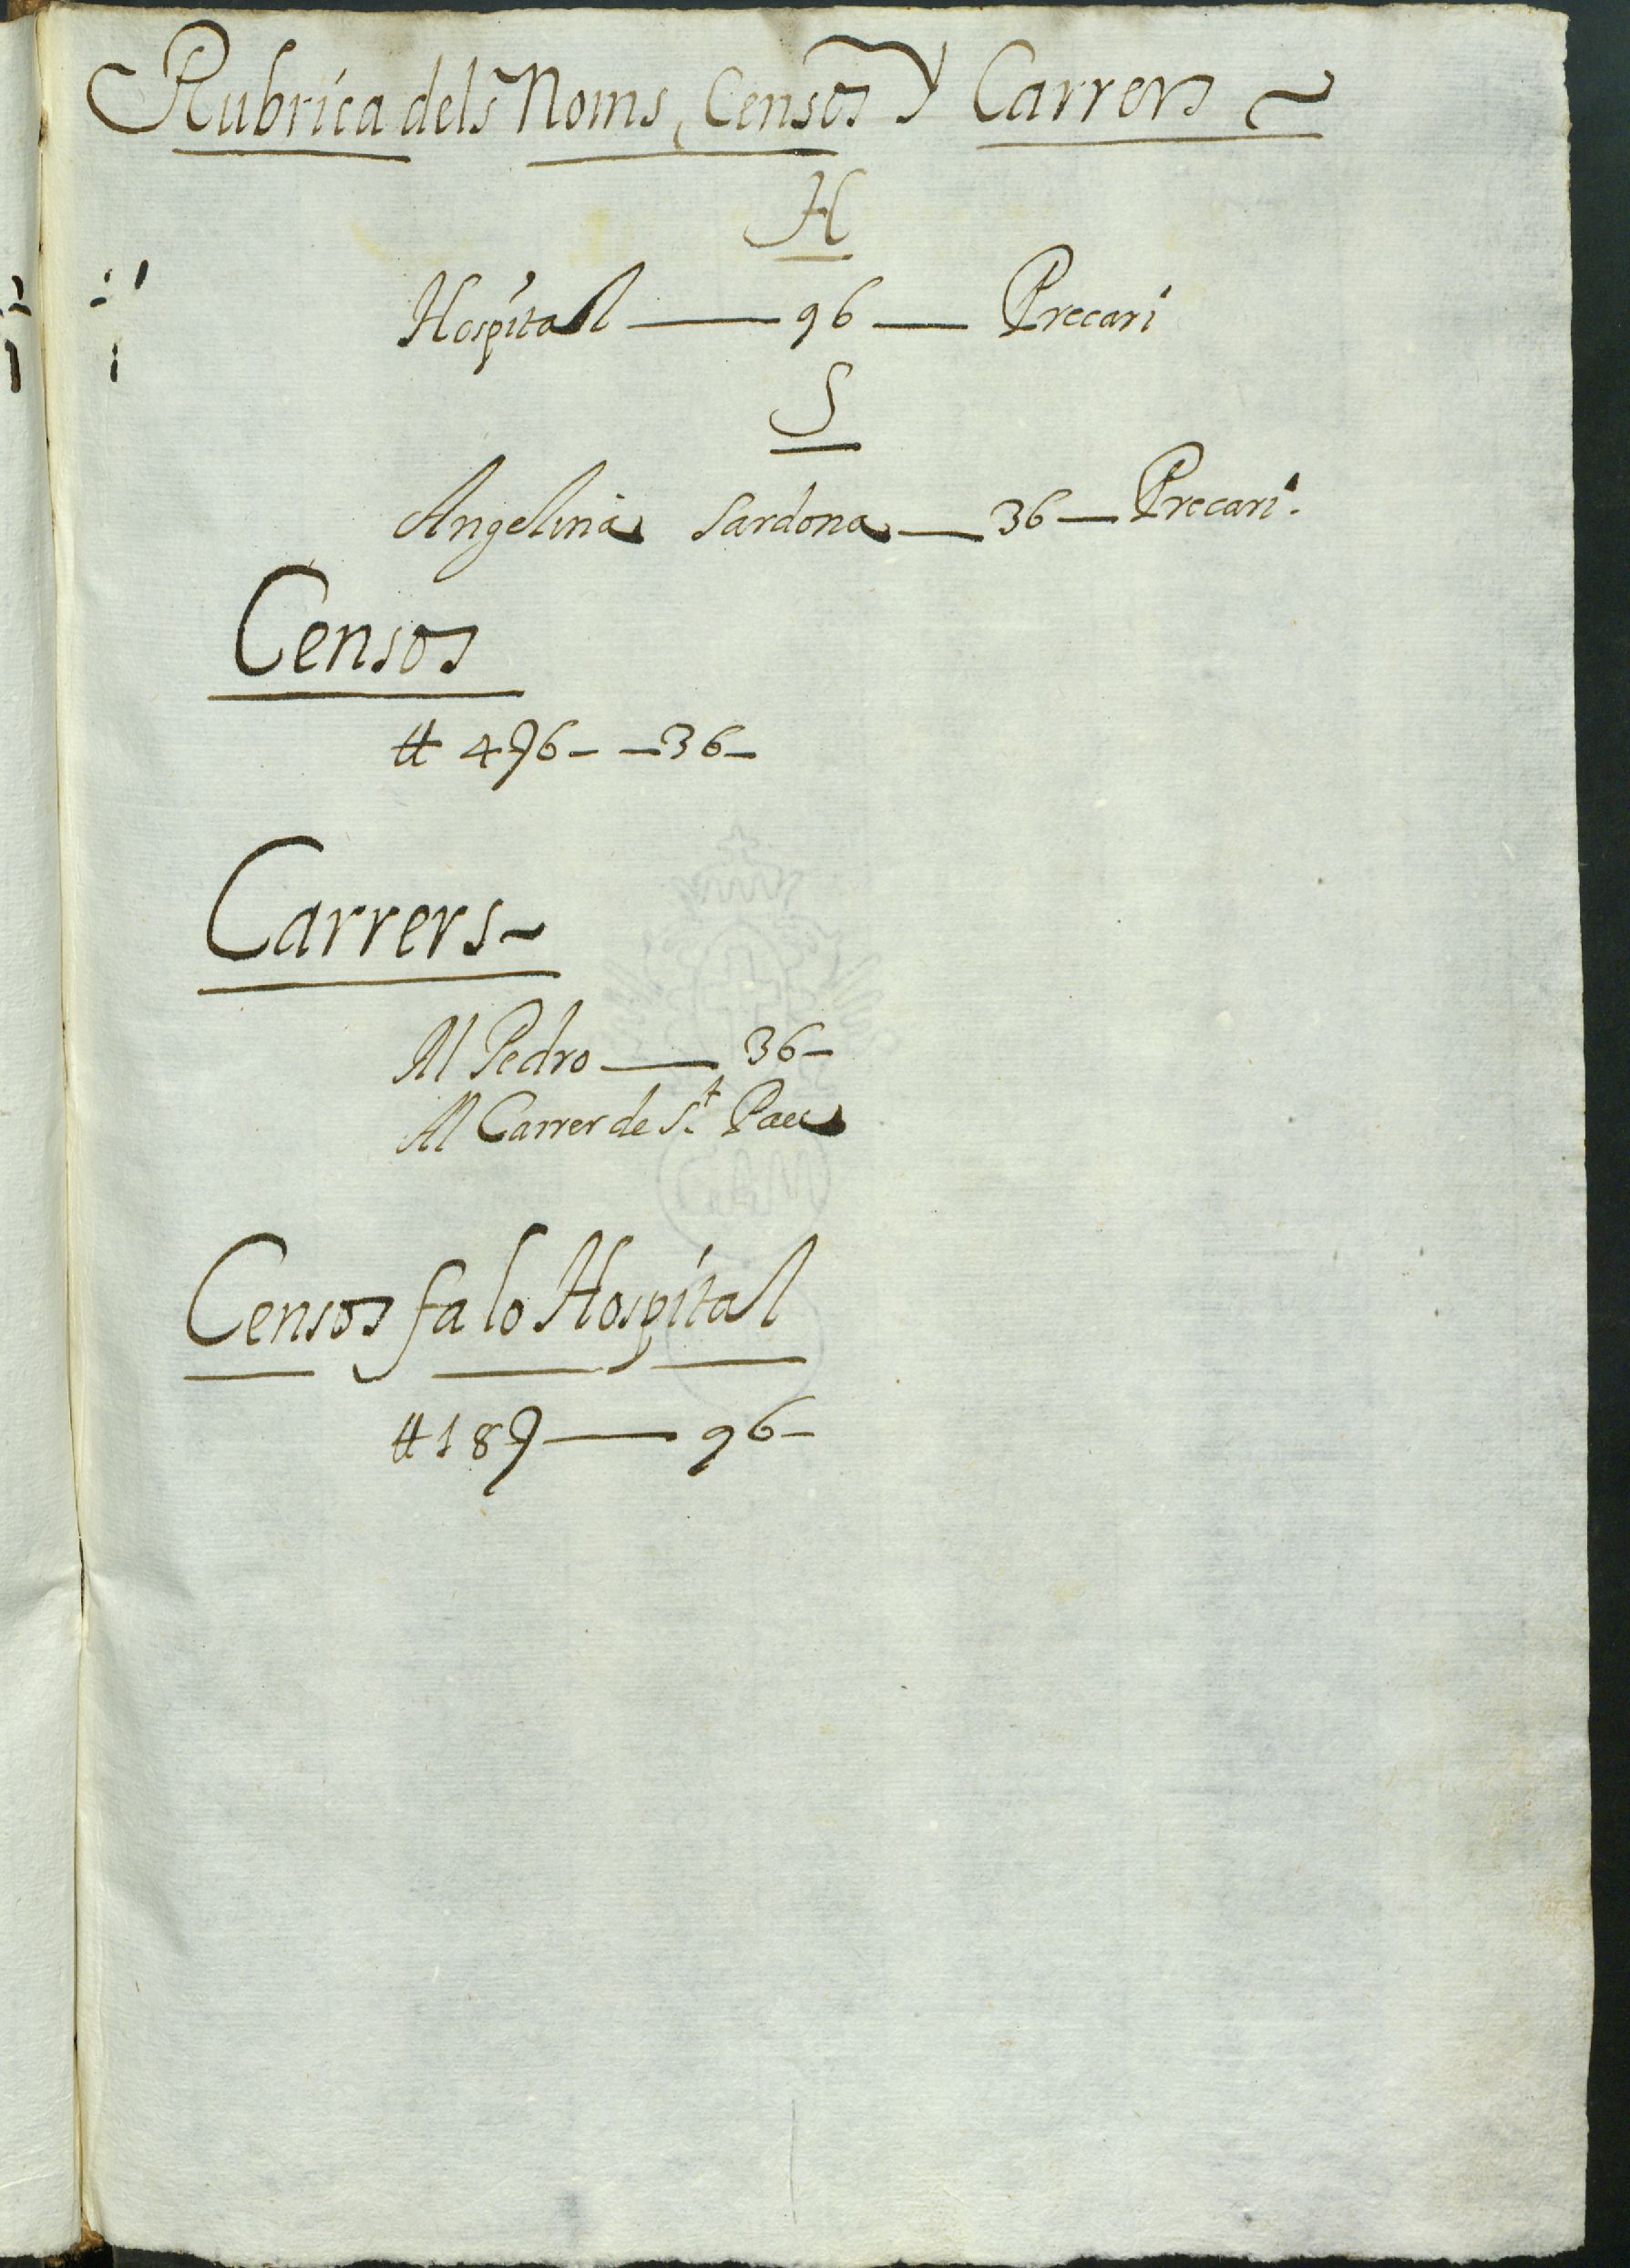 Rubrica dels Noms, Censos y Carrers ~
H
Hospital — 96 — Precari
S
Angelina Sardona — 36 — Precari.
Censos
# 496 — — 36 —
Carrers ~
Al Pedro — 36 —
Al Carrer de St. Pau
Censos fa lo Hospital
# 189 — 96 —